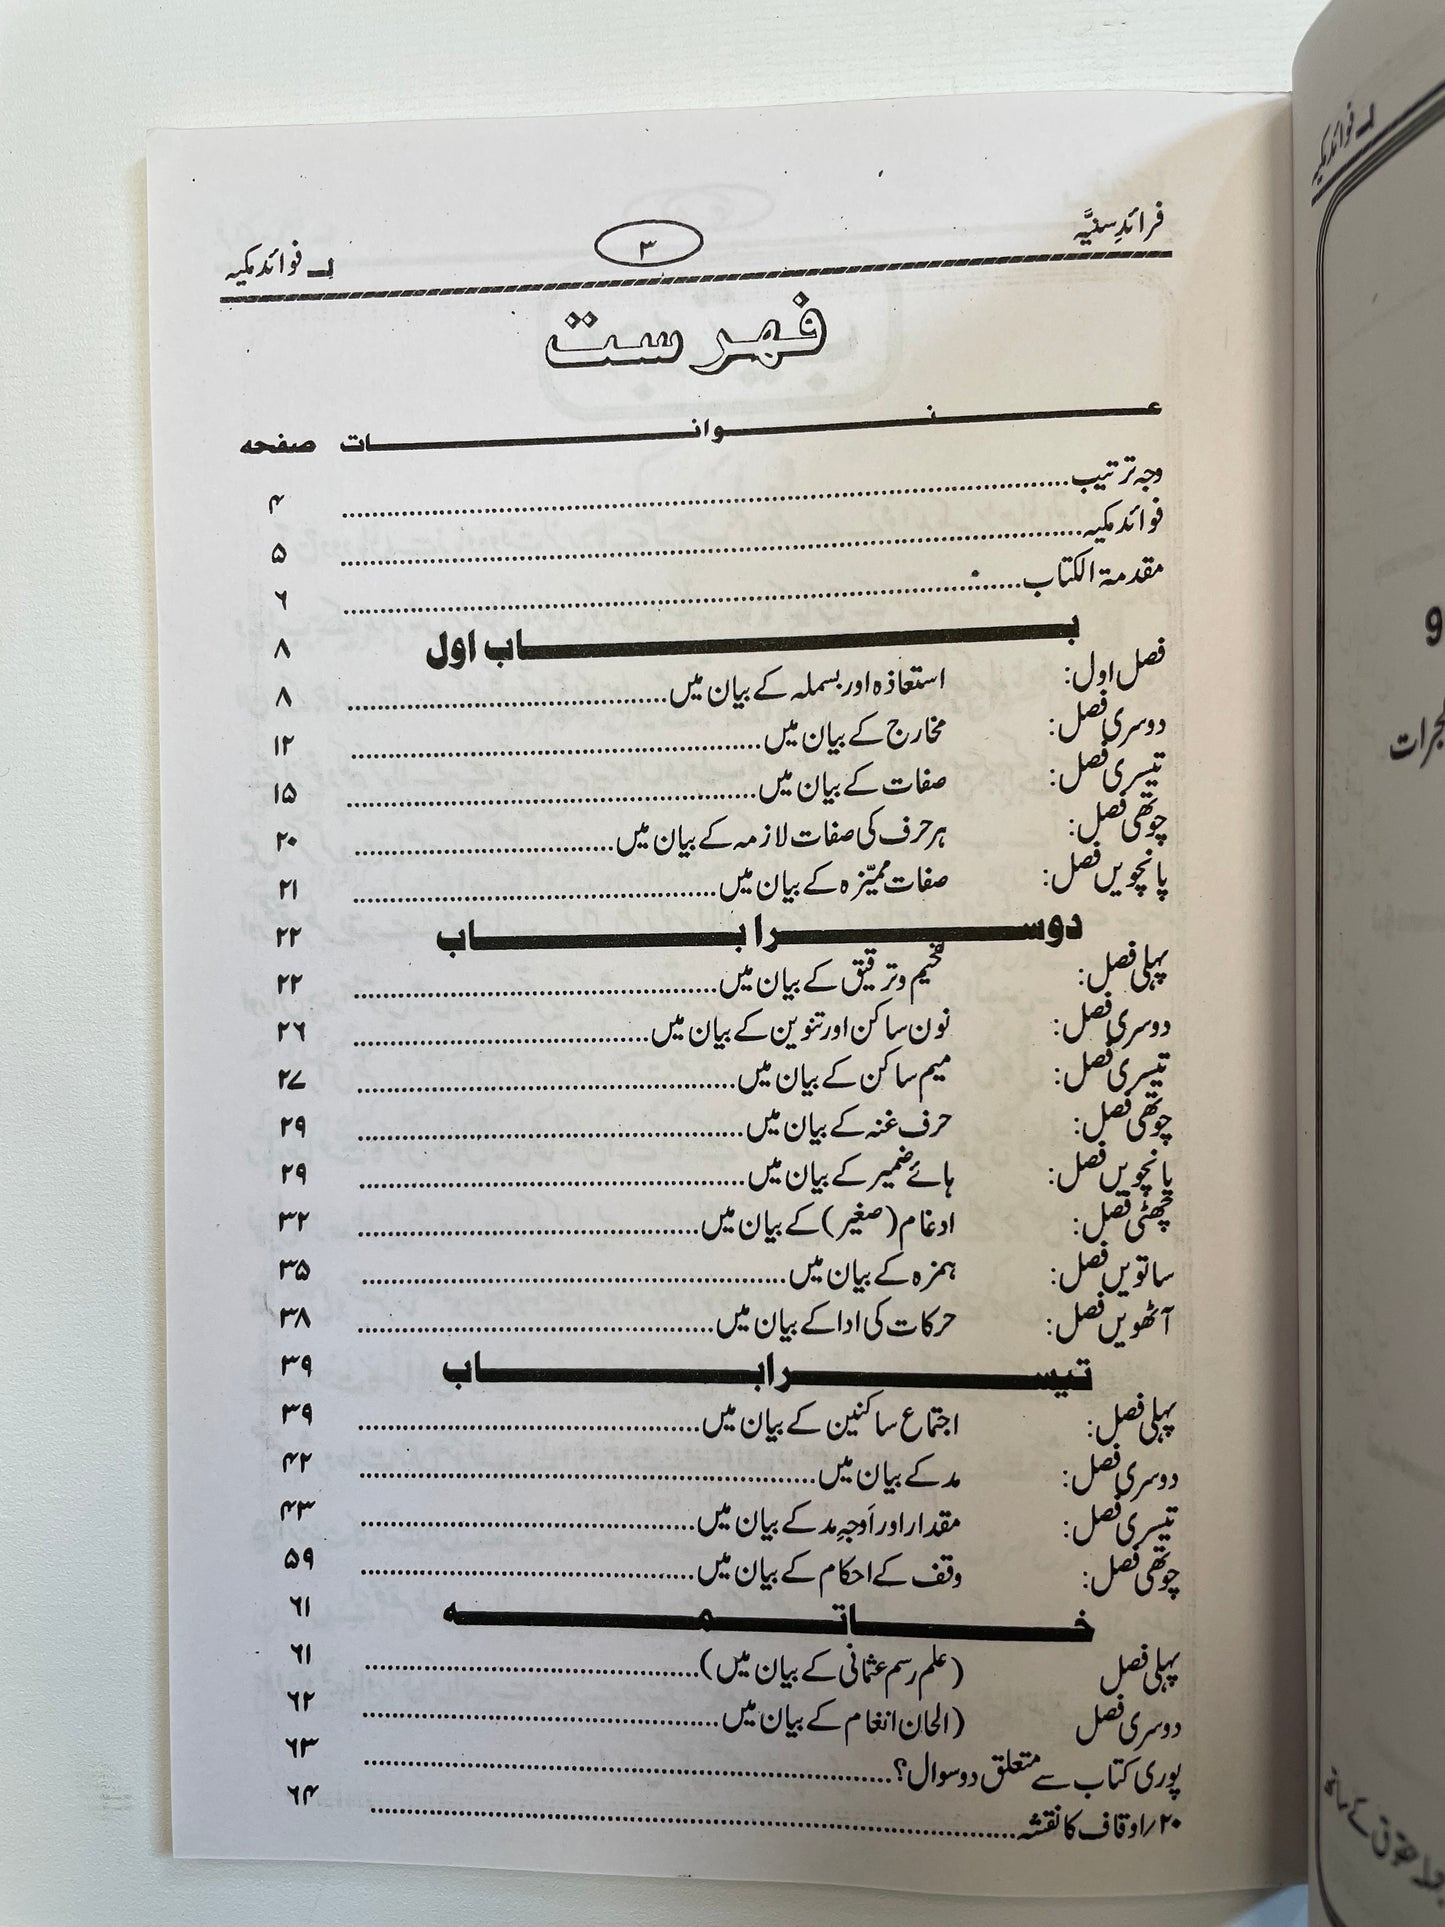 فرائدِ سنیَّہ ۳ لـ فوائد مکیہ
فہرست
عنوانات صفحہ
وجہ ترتیب ۴
فوائد مکیہ ۵
مقدمۃ الکتاب ۶
باب اول ۸
فصل اول: استعاذہ اور بسملہ کے بیان میں ۸
دوسری فصل: مخارج کے بیان میں ۱۲
تیسری فصل: صفات کے بیان میں ۱۵
چوتھی فصل: ہر حرف کی صفات لازمہ کے بیان میں ۲۰
پانچویں فصل: صفات ممیّزہ کے بیان میں ۲۱
دوسرا باب ۲۲
پہلی فصل: تفخیم و ترقیق کے بیان میں ۲۲
دوسری فصل: نون ساکن اور تنوین کے بیان میں ۲۶
تیسری فصل: میم ساکن کے بیان میں ۲۷
چوتھی فصل: حرف غنہ کے بیان میں ۲۹
پانچویں فصل: ہائے ضمیر کے بیان میں ۲۹
چھٹی فصل: ادغام (صغیر) کے بیان میں ۳۲
ساتویں فصل: ہمزہ کے بیان میں ۳۵
آٹھویں فصل: حرکات کی ادا کے بیان میں ۳۸
تیسرا باب ۳۹
پہلی فصل: اجتماع ساکنین کے بیان میں ۳۹
دوسری فصل: مد کے بیان میں ۴۲
تیسری فصل: مقدار اور اَوجہِ مد کے بیان میں ۴۳
چوتھی فصل: وقف کے احکام کے بیان میں ۵۹
خاتمہ ۶۱
پہلی فصل (علم رسم عثمانی کے بیان میں) ۶۱
دوسری فصل (الحان انغام کے بیان میں ۶۲
پوری کتاب سے متعلق دو سوال؟ ۶۳
۲۰/اوقاف کا نقشہ ۶۴
لـ فوائد مکیہ
9
گجرات